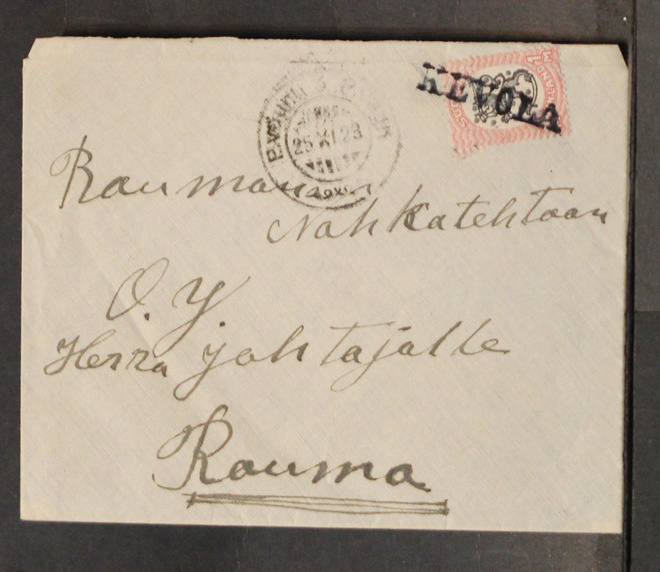 KEVOLA
25 XI 23
Rauman
Nahkatehtaan
O. Y.
Herra johtajalle
Rauma